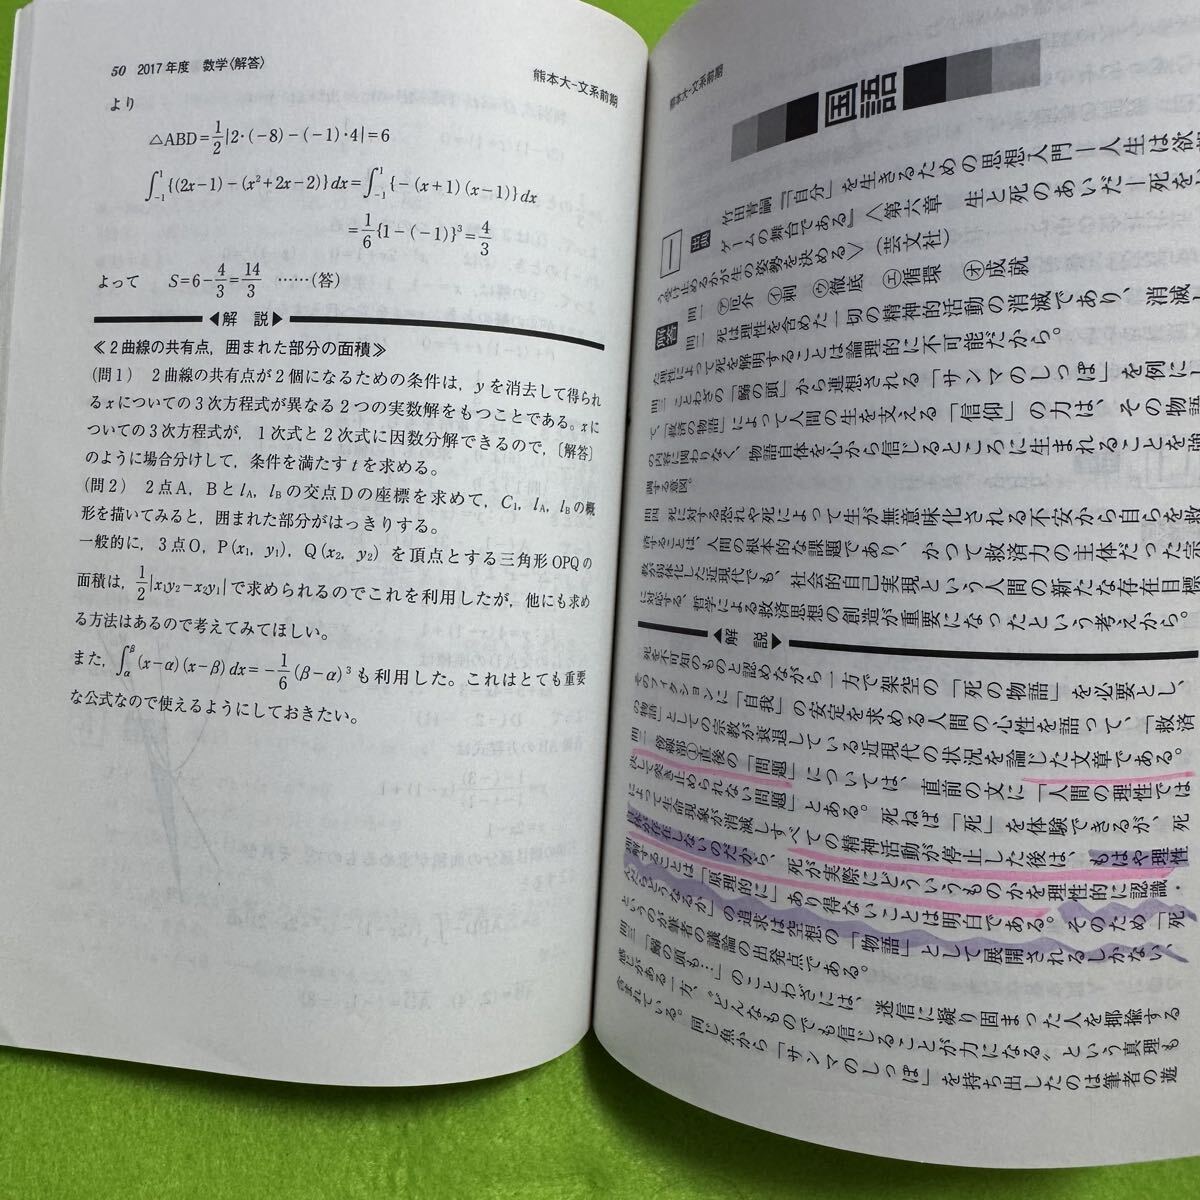 50 2017年度 数学〈解答〉 熊本大-文系前期
より
△ABD=1/2|2・(-8)-(-1)・4|=6
∫₋₁¹{(2x-1)-(x²+2x-2)}dx=∫₋₁¹{-(x+1)(x-1)}dx
=1/6{1-(-1)}³=4/3
よって S=6-4/3=14/3 ……(答)
◀解 説▶
≪2曲線の共有点,囲まれた部分の面積≫
(問1) 2曲線の共有点が2個になるための条件は,yを消去して得られ
るxについての3次方程式が異なる2つの実数解をもつことである。xに
ついての3次方程式が,1次式と2次式に因数分解できるので,〔解答〕
のように場合分けして,条件を満たすtを求める。
(問2) 2点A,Bとl_A,l_Bの交点Dの座標を求めて,C₁,l_A,l_Bの概
形を描いてみると,囲まれた部分がはっきりする。
一般的に,3点O,P(x₁, y₁),Q(x₂, y₂)を頂点とする三角形OPQの
面積は,1/2|x₁y₂-x₂y₁|で求められるのでこれを利用したが,他にも求め
る方法はあるので考えてみてほしい。
また,∫_α^β(x-α)(x-β)dx=-1/6(β-α)³も利用した。これはとても重要
な公式なので使えるようにしておきたい。
熊本大-文系前期
国語
一
出典 竹田青嗣『「自分」を生きるための思想入門―人生は欲
ゲームの舞台である』〈第六章 生と死のあいだ―死をい
う受け止めるかが生の姿勢を決める〉(芸文社)
解答 問一 ㋐厄介 ㋑刺 ㋒徹底 ㋓循環 ㋔成就
問二 死は理性を含めた一切の精神的活動の消滅であり、消滅
た理性によって死を解明することは論理的に不可能だから。
問三 ことわざの「鰯の頭」から連想される「サンマのしっぽ」を例にし
て、「救済の物語」によって人間の生を支える「信仰」の力は、その物語
の内容に関わりなく、物語自体を心から信じるところに生まれることを強
調する意図。
問四 死に対する恐れや死によって生が無意味化される不安から自らを救
済することは、人間の根本的な課題であり、かつて救済力の主体だった宗
教が弱体化した近現代でも、社会的自己実現という人間の新たな存在目標
に対応する、哲学による救済思想の創造が重要になったという考えから。
◀解 説▶
死を不可知のものと認めながら一方で架空の「死の物語」を必要とし、
そのフィクションに「自我」の安定を求める人間の心性を語って、「救済
の物語」としての宗教が衰退している近現代の状況を論じた文章である。
問二 傍線部①直後の「問題」については、直前の文に「人間の理性では
決して突き止められない問題」とある。死ねば「死」を体験できるが、死
によって生命現象が消滅しすべての精神活動が停止した後は、もはや理性
自体が存在しないのだから、死が実際にどういうものかを理性的に認識・
理解することは「原理的に」あり得ないことは明白である。そのため「死
んだらどうなるか」の追求は空想の「物語」として展開されるしかない、
というのが筆者の議論の出発点である。
問三 「鰯の頭も…」のことわざには、迷信に凝り固まった人を揶揄する
感じがある一方、“どんなものでも信じることが力になる”という真理も
含まれている。同じ魚から「サンマのしっぽ」を持ち出したのは筆者の遊